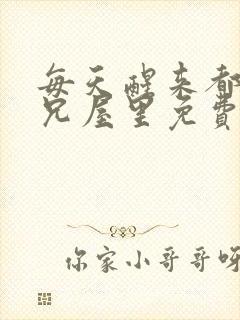 每天醒来都
兄屋里免费
你家小哥哥呀